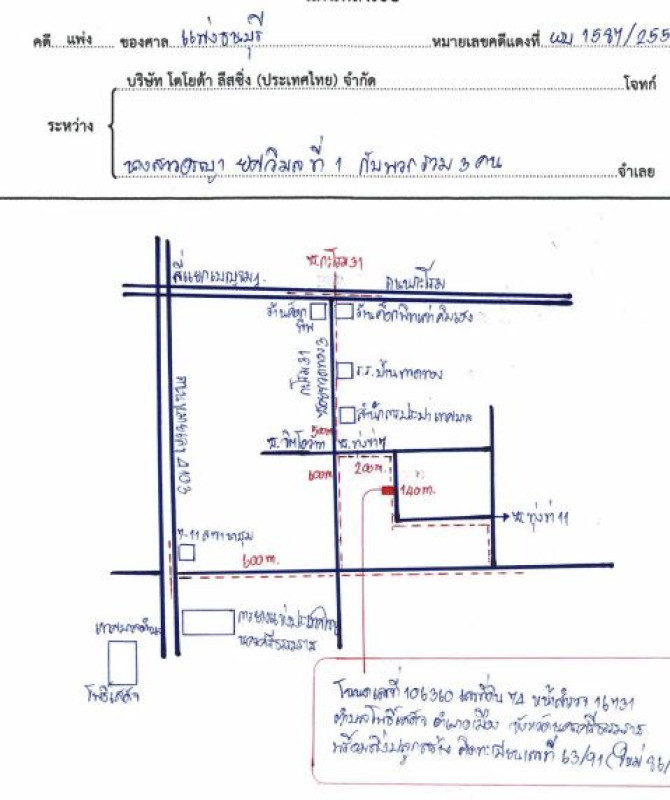 คดี แพ่ง ของศาล แพ่งธนบุรี หมายเลขคดีแดงที่ ผบ 1587/255
บริษัท โตโยต้า ลีสซิ่ง (ประเทศไทย) จำกัด โจทก์
ระหว่าง
นางสาวอรญา ยศวิมล ที่ 1 กับพวกรวม 3 คน จำเลย
ซ.กะโรม 31
สี่แยกเบญจมฯ
ถนนกะโรม
กะโรม 31
ร.ร. บ้านทวดทอง
สำนักการประปา เทศบาล
500m.
ซ. ทุ่งข่า
600m.
200m.
140m.
ซ. ทุ่งข่า 11
7-11 สาขา
600m.
การยางแห่งประเทศไทย
นครศรีธรรมราช
เทศบาลตำบล
โพธิ์เสด็จ
โฉนดเลขที่ 106360 เลขที่ดิน 74 หน้าสำรวจ 16731
ตำบลโพธิ์เสด็จ อำเภอเมือง จังหวัดนครศรีธรรมราช
พร้อมสิ่งปลูกสร้าง ติดทะเบียนเลขที่ 63/91 (ใหม่ 86/